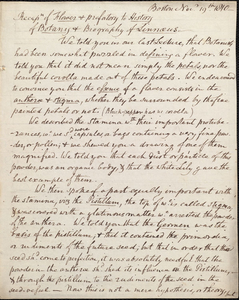 Boston Nov. 19th 1810.
of Flower & prefatory to History
of Botany & Biography of Linnæus.
We told you in our Lecture, that Botanists
had been somewhat puzzled in defining a flower. We
told you that it did not mean simply the petals, nor the
beautiful corolla, made out of these petals. We endeavoured
to convince you that the essence of a flower consists in the
anthera & stigma, whether they be surrounded by these fine
painted petals or not
We described the Stamina, with their important protube-
rances, or capsules, or bags containing a very fine pow-
der, or pollen; & we showed you a drawing of one of them
magnified. We told you that each dust or particle of this
powder, was an organic body; & that the White-lily, gave the
best example of them.
We then spoke of a part equally important with
the stamens, viz the Pistillum, the top of wh is called Stigma
& was covered with a glutinous matter wh arrested the powder of
the anthera. We told you that the Germen was the
base of the pistillum, & that it contained the primordia,
or rudiments of the future seed, but that in order that the
seed shd come to perfection, it was absolutely needful that the
powder in the anthera shd shed its influence on the Pistillum,
& through the pistillum to the rudiments of the seed in the
Now this is not a mere hypothesis, or theory,